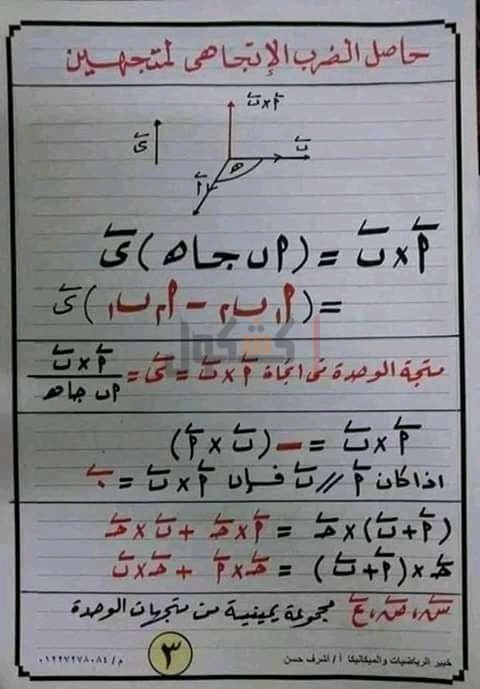 حاصل الضرب الإتجاهى لمتجهين
أ × ب
ى
ب
هـ
أ
أ × ب = (أ ب جا هـ) ى
= (أ١ ب٢ - أ٢ ب١) ى
متجة الوحدة فى اتجاة أ × ب = ى = أ × ب / أ ب جا هـ
أ × ب = - (ب × أ)
اذا كان أ // ب فإن أ × ب = ٠
(أ + ب) × حـ = أ × حـ + ب × حـ
حـ × (أ + ب) = حـ × أ + حـ × ب
س، ص، ع مجموعة يمينية من متجهات الوحدة
خبير الرياضيات والميكانيكا أ / أشرف حسن
٣
م / ٠١٢٢٧٢٧٨٠٨٤
كشكول